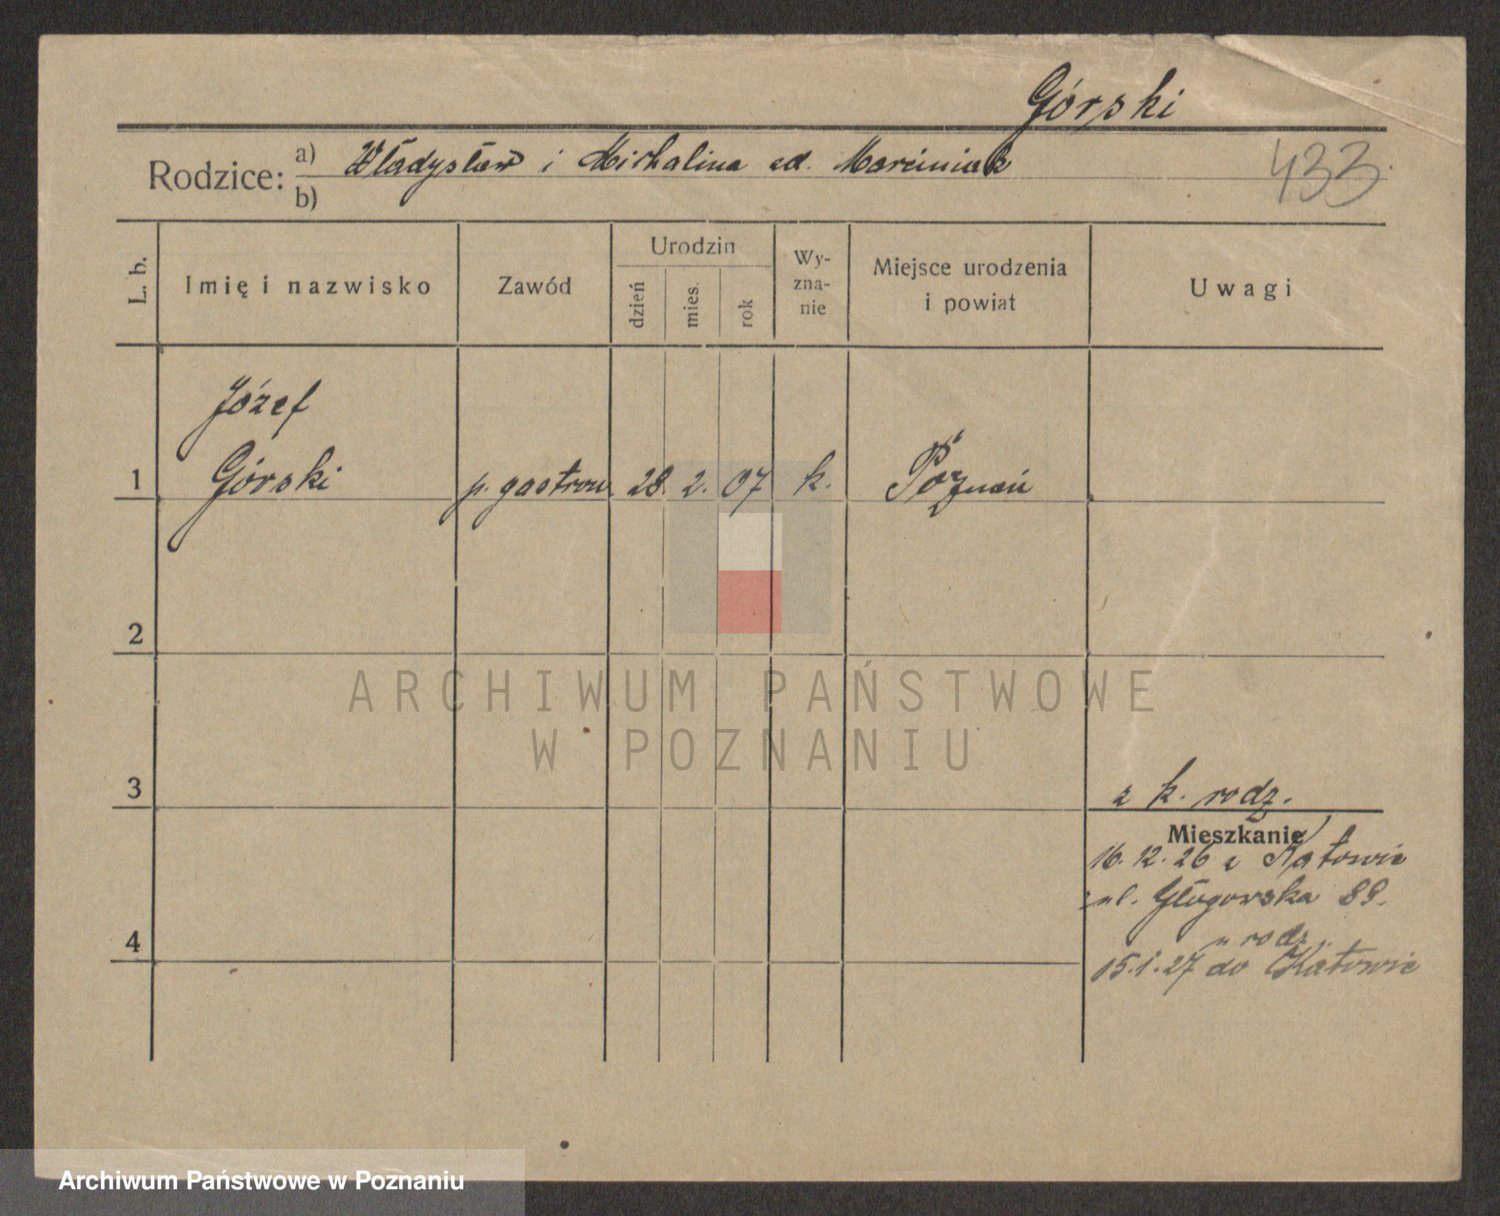 Górski
Rodzice: a) Władysław i Michalina zd. Marciniak
b)
433
L. b.
Imię i nazwisko
Zawód
Urodzin
dzień
mies.
rok
Wy-
zna-
nie
Miejsce urodzenia
i powiat
Uwagi
Józef
1 Górski p. gastron. 28. 2. 07 k. Poznań
2
ARCHIWUM PAŃSTWOWE
W POZNANIU
3
z k. rodz.
Mieszkanie
16. 12. 26 z Katowic
ul. Głogowska 88.
u rodz.
4
15.1.27 do Katowic
Archiwum Państwowe w Poznaniu